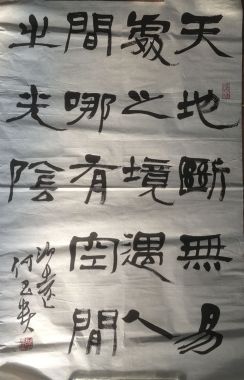 天地斷無易
處之境遇人
間哪有空閒
之光陰